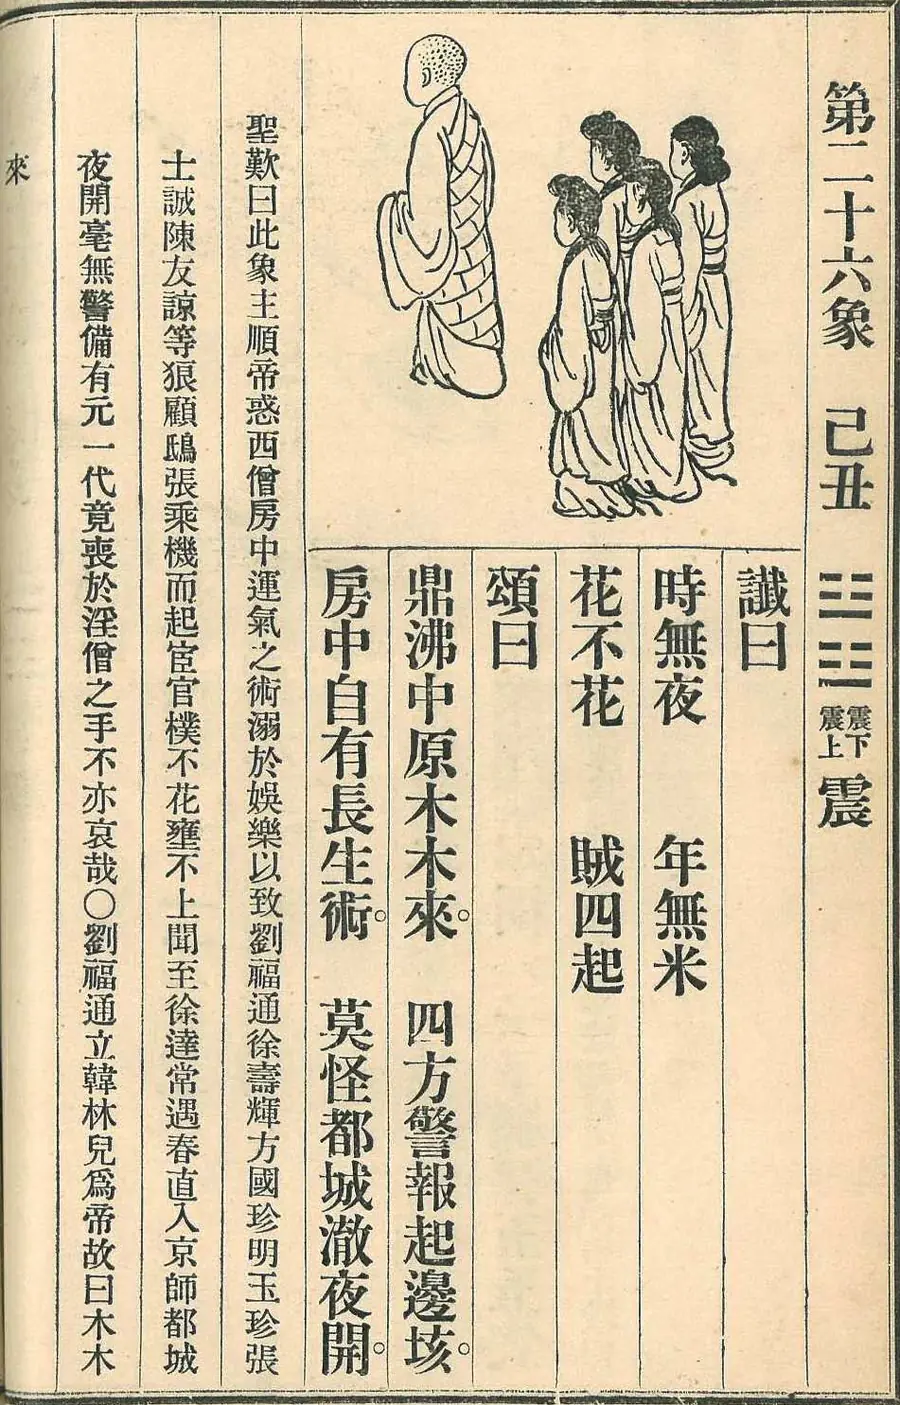 第二十六象　己丑　䷲　震下震上　震
讖曰
時無夜　年無米
花不花　賊四起
頌曰
鼎沸中原木木來。　四方警報起邊垓。
房中自有長生術。　莫怪都城澈夜開。
聖歎曰此象主順帝惑西僧房中運氣之術溺於娛樂以致劉福通徐壽輝方國珍明玉珍張
士誠陳友諒等狼顧鴟張乘機而起宦官樸不花壅不上聞至徐達常遇春直入京師都城
夜開毫無警備有元一代竟喪於淫僧之手不亦哀哉○劉福通立韓林兒爲帝故曰木木
來